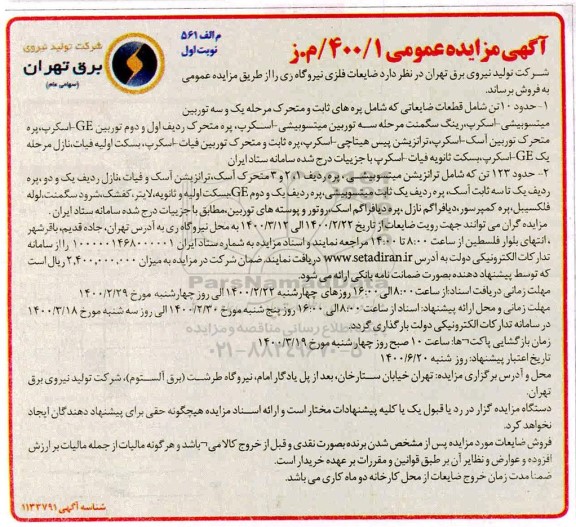 آگهی مزایده عمومی ۴۰۰/۱/م.ز
م الف ۵۶۱
نوبت اول
شرکت تولید نیروی
برق تهران
(سهامی عام)
شرکت تولید نیروی برق تهران در نظر دارد ضایعات فلزی نیروگاه ری را از طریق مزایده عمومی
به فروش برساند.
۱-حدود ۱۰ تن شامل قطعات ضایعاتی که شامل پره های ثابت و متحرک مرحله یک و سه توربین
میتسوبیشی-اسکرپ،رینگ سگمنت مرحله سه توربین میتسوبیشی-اسکرپ، پره متحرک ردیف اول و دوم توربین GE-اسکرپ،پره
متحرک توربین آسک-اسکرپ،ترانزیشن پیس هیتاچی-اسکرپ،پره ثابت و متحرک توربین فیات-اسکرپ، بسکت اولیه فیات،نازل مرحله
یک GE-اسکرپ،بسکت ثانویه فیات-اسکرپ با جزییات درج شده سامانه ستاد ایران
۲- حدود ۱۲۳ تن که شامل ترانزیشن میتسوبیشی، پره ردیف ۲،۱ و ۳ متحرک آسک،ترانزیشن آسک و فیات ،نازل ردیف یک و دو ،پره
ردیف یک تا سه ثابت آسک، پره ردیف یک ثابت میتسوبیشی،پره ردیف یک و دوم GE،بسکت اولیه و ثانویه،لاینر،کفشک،شرود سگمنت،لوله
فلکسیبل،پره کمپرسور،دیافراگم نازل ،پره دیافراگم اسک،روتور و پوسته های توربین،مطابق با جزییات درج شده سامانه ستاد ایران .
مزایده گران می توانند جهت رویت ضایعات از تاریخ ۱۴۰۰/۲/۲۲ الی ۱۴۰۰/۳/۱۲ به محل نیروگاه ری به آدرس تهران، جاده قدیم،باقرشهر
، انتهای بلوار فلسطین از ساعت ۸:۰۰ تا ۱۴:۰۰ مراجعه نمایند و اسناد مزایده به شماره ستاد ایران ۱۰۰۰۰۰۱۴۶۸۰۰۰۰۰۱ را از سامانه
تدارکات الکترونیکی دولت به آدرس www.setadiran.ir دریافت نمایند. ضمان شرکت در مزایده به میزان ۲,۴۰۰,۰۰۰,۰۰۰ ریال است
که توسط پیشنهاد دهنده بصورت ضمانت نامه بانکی ارائه می شود.
مهلت زمانی دریافت اسناد:از ساعت ۸:۰۰ الی ۱۶:۰۰ روزهای چهارشنبه ۱۴۰۰/۲/۲۲ الی روز چهارشنبه مورخ ۱۴۰۰/۲/۲۹
مهلت زمانی و محل ارائه پیشنهاد: اسناد از ساعت ۸:۰۰ الی ۱۶:۰۰ روز پنج شنبه مورخ ۱۴۰۰/۲/۳۰ الی روز سه شنبه مورخ ۱۴۰۰/۳/۱۸
در سامانه تدارکات الکترونیکی دولت بارگذاری گردد.
زمان بازگشایی پاکت¬ها: ساعت ۱۰ صبح روز چهارشنبه مورخ ۱۴۰۰/۳/۱۹
تاریخ اعتبار پیشنهاد: روز شنبه ۱۴۰۰/۶/۲۰
محل و آدرس برگزاری مزایده: تهران خیابان ستارخان، بعد از پل یادگار امام، نیروگاه طرشت (برق آلستوم)، شرکت تولید نیروی برق
تهران.
دستگاه مزایده گزار در رد یا قبول یک یا کلیه پیشنهادات مختار است و ارائه اسناد مزایده هیچگونه حقی برای پیشنهاد دهندگان ایجاد
نخواهد کرد.
فروش ضایعات مورد مزایده پس از مشخص شدن برنده بصورت نقدی و قبل از خروج کالا می¬باشد و هرگونه مالیات از جمله مالیات بر ارزش
افزوده و عوارض و نظایر آن بر طبق قوانین و مقررات بر عهده خریدار است.
ضمنا مدت زمان خروج ضایعات از محل کارخانه دو ماه کاری می باشد.
شناسه آگهی ۱۱۳۳۷۹۱